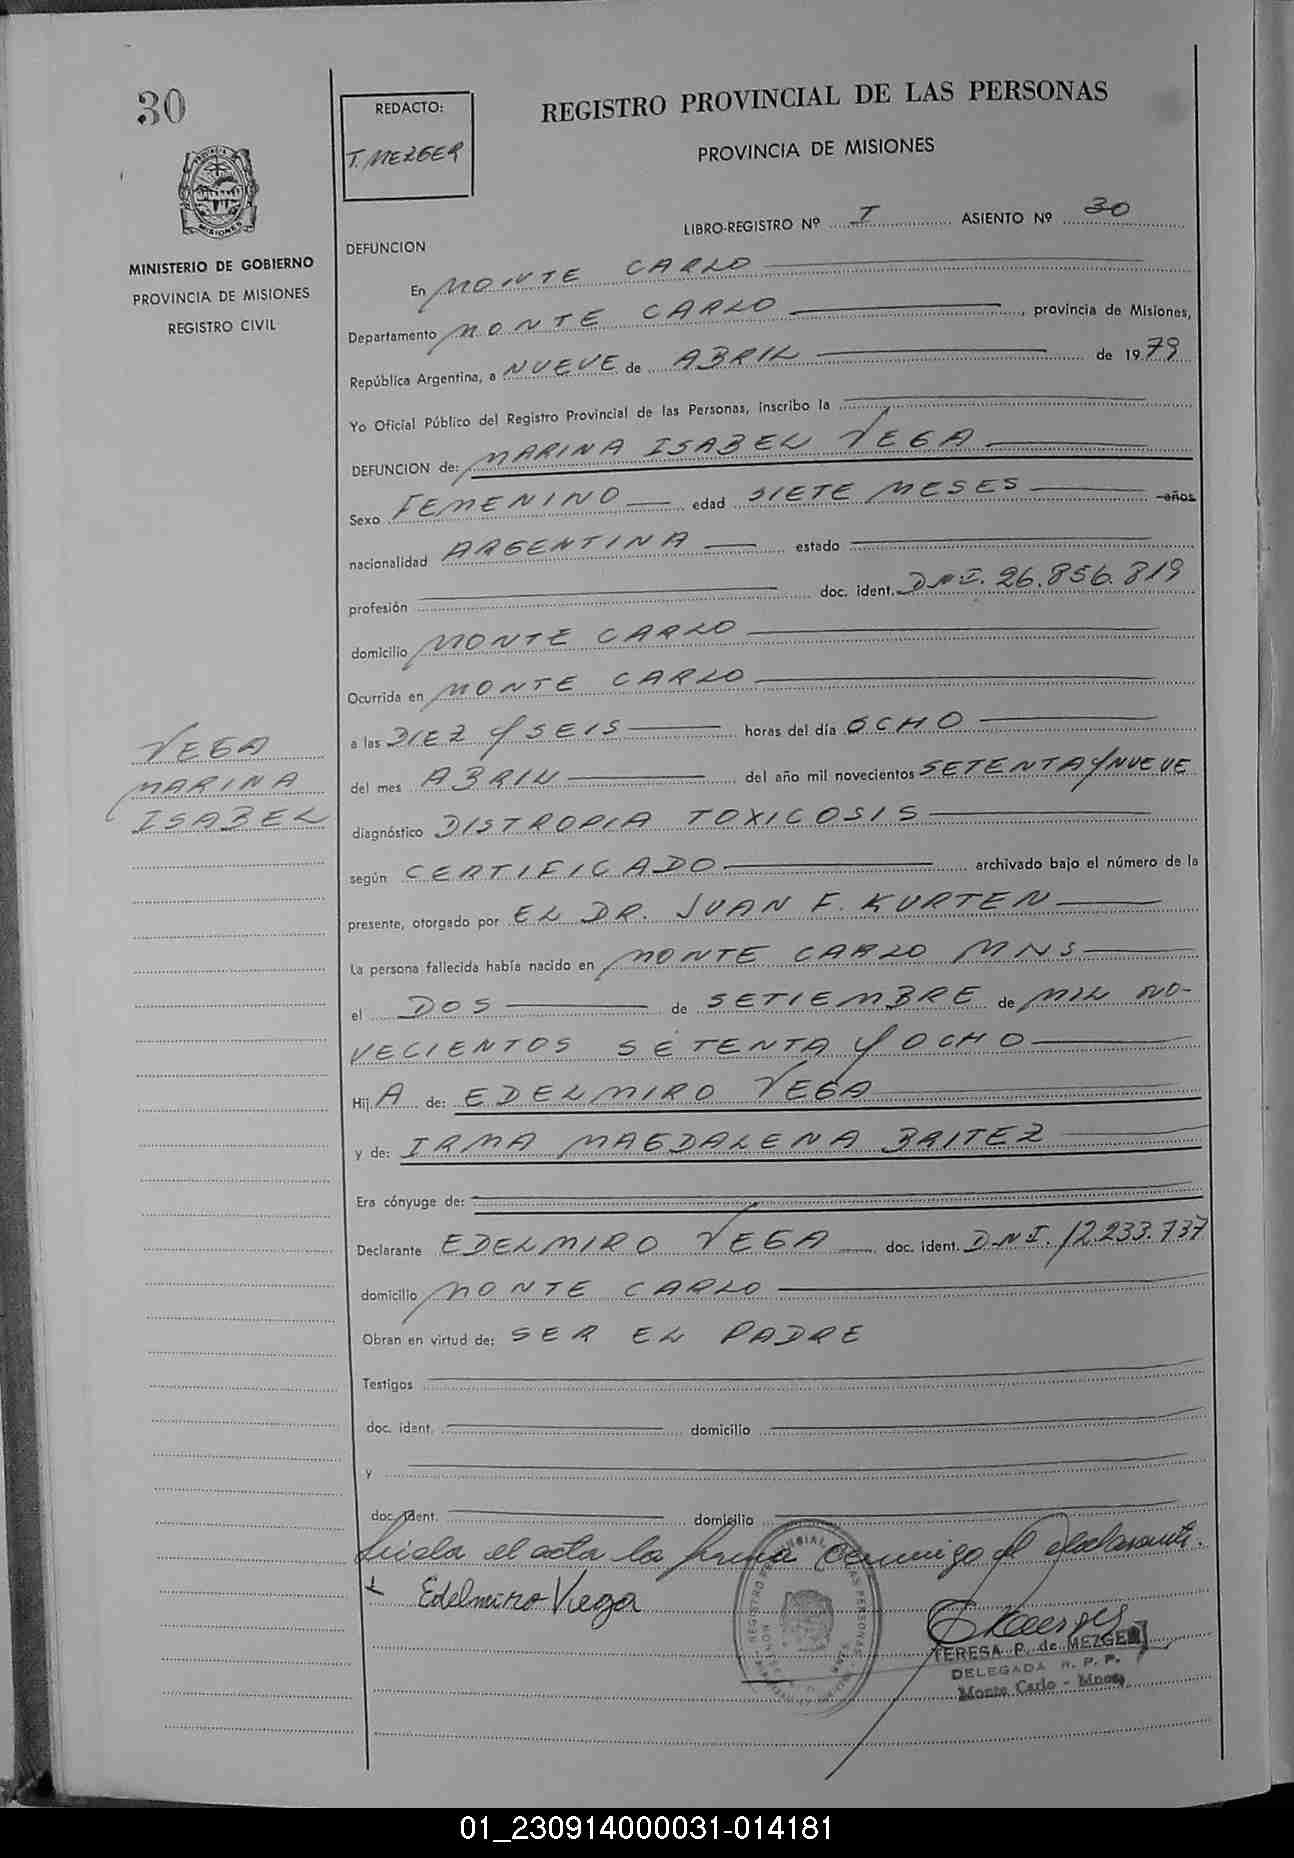 30
REDACTO:
T. MEZGER
REGISTRO PROVINCIAL DE LAS PERSONAS
PROVINCIA DE MISIONES
LIBRO-REGISTRO Nº I ASIENTO Nº 30
MINISTERIO DE GOBIERNO
PROVINCIA DE MISIONES
REGISTRO CIVIL
DEFUNCION
En MONTE CARLO
Departamento MONTE CARLO, provincia de Misiones,
República Argentina, a NUEVE de ABRIL de 1979
Yo Oficial Público del Registro Provincial de las Personas, inscribo la
DEFUNCION de: MARINA ISABEL VEGA
Sexo FEMENINO edad SIETE MESES años
nacionalidad ARGENTINA estado
profesión doc. ident. DNI. 26.856.819
domicilio MONTE CARLO
Ocurrida en MONTE CARLO
a las DIEZ Y SEIS horas del día OCHO
del mes ABRIL del año mil novecientos SETENTA Y NUEVE
VEGA
MARINA
ISABEL
diagnóstico DISTROPIA TOXICOSIS
según CERTIFICADO archivado bajo el número de la
presente, otorgado por EL DR. JUAN F. KURTEN
La persona fallecida había nacido en MONTE CARLO MNS
el DOS de SETIEMBRE de MIL NO-
VECIENTOS SETENTA Y OCHO
Hij A de: EDELMIRO VEGA
y de: IRMA MAGDALENA BRITEZ
Era cónyuge de:
Declarante EDELMIRO VEGA doc. ident. DNI. 12.233.737
domicilio MONTE CARLO
Obran en virtud de: SER EL PADRE
Testigos
doc. ident. domicilio
y
doc. ident. domicilio
leida el acta la firma conmigo el declarante.
x Edelmiro Vega
TERESA P. de MEZGER
DELEGADA R. P. P.
Monte Carlo - Mnes
01_230914000031-014181